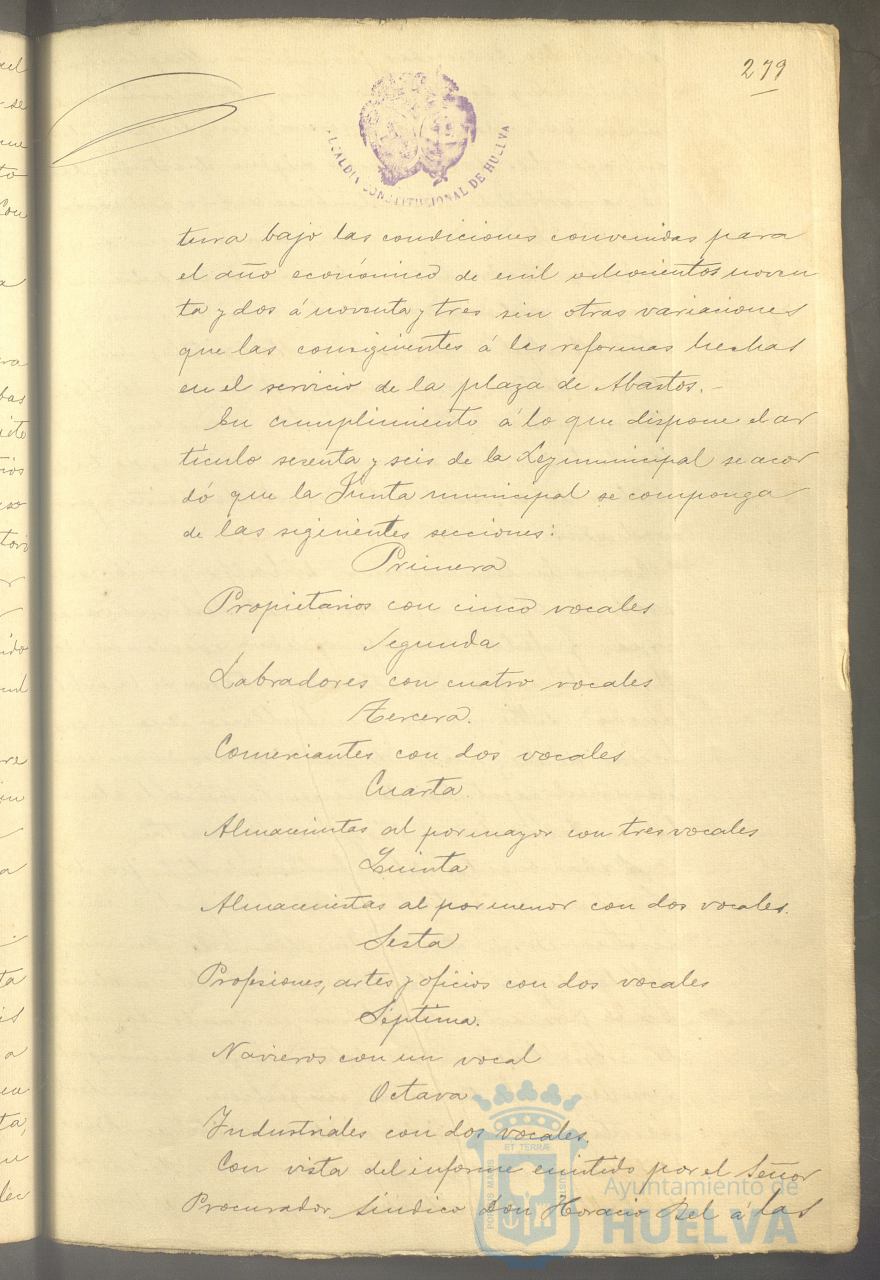 279
ALCALDIA CONSTITUCIONAL DE HUELVA
terra bajo las condiciones convenidas para
el año económico de mil ochocientos noven
ta y dos á noventa y tres sin otras variaciones
que las consiguientes á las reformas hechas
en el servicio de la plaza de Abastos.-
En cumplimiento á lo que dispone el ar
tículo sesenta y seis de la Ley municipal se acor
dó que la Junta municipal se componga
de las siguientes secciones:
Primera
Propietarios con cinco vocales
Segunda
Labradores con cuatro vocales
Tercera.
Comerciantes con dos vocales
Cuarta.
Almacenistas al por mayor con tres vocales
Quinta
Almacenistas al por menor con dos vocales.
Sesta
Profesiones, artes y oficios con dos vocales
Séptima.
Navieros con un vocal
Octava
Industriales con dos vocales.
Con vista del informe emitido por el Señor
Procurador Síndico Don Horacio Bel á las
Ayuntamiento de
HUELVA